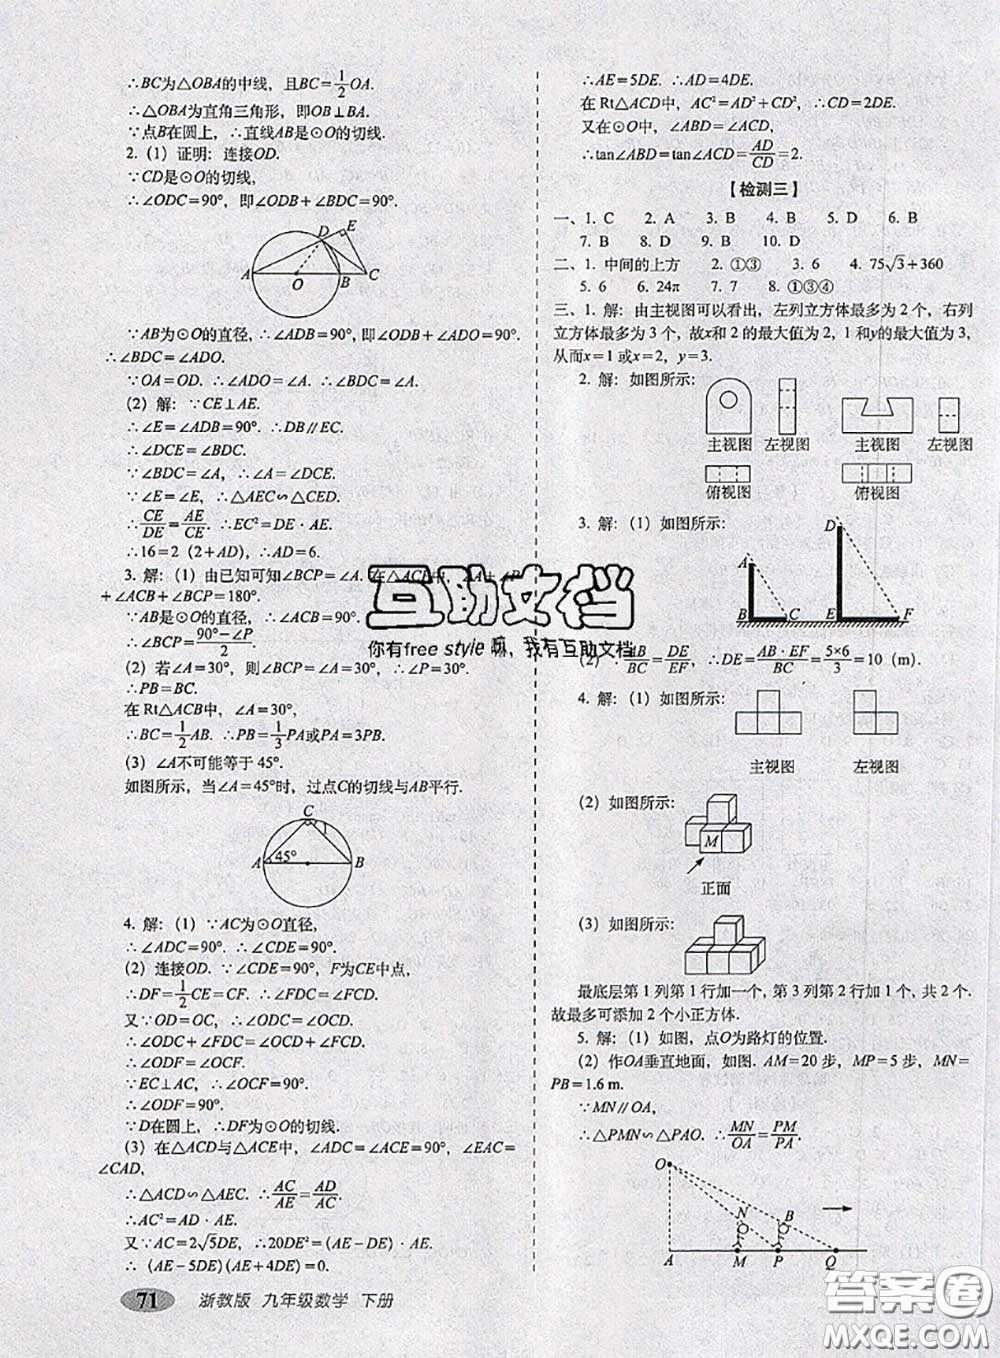 ∴BC为△OBA的中线，且BC=1/2OA.
∴△OBA为直角三角形，即OB⊥BA.
∵点B在圆上，∴直线AB是⊙O的切线.
2.（1）证明：连接OD.
∵CD是⊙O的切线，
∴∠ODC=90°，即∠ODB+∠BDC=90°.
D
E
A
O
B
C
∵AB为⊙O的直径，∴∠ADB=90°，即∠ODB+∠ADO=90°.
∴∠BDC=∠ADO.
∵OA=OD. ∴∠ADO=∠A. ∴∠BDC=∠A.
（2）解：∵CE⊥AE.
∴∠E=∠ADB=90°. ∴DB∥EC.
∴∠DCE=∠BDC.
∵∠BDC=∠A，∴∠A=∠DCE.
∵∠E=∠E，∴△AEC∽△CED.
∴CE/DE=AE/CE. ∴EC²=DE·AE.
∴16=2（2+AD），∴AD=6.
3. 解：（1）由已知可知∠BCP=∠A. 在△ACP中，∠A+∠P
+∠ACB+∠BCP=180°.
∵AB是⊙O的直径，∴∠ACB=90°.
∴∠BCP=(90°-∠P)/2.
（2）若∠A=30°，则∠BCP=∠A=30°. ∴∠P=30°.
∴PB=BC.
在Rt△ACB中，∠A=30°，
∴BC=1/2AB. ∴PB=1/3PA或PA=3PB.
（3）∠A不可能等于45°.
如图所示，当∠A=45°时，过点C的切线与AB平行.
C
1
A
45°
B
4. 解：（1）∵AC为⊙O直径，
∴∠ADC=90°. ∴∠CDE=90°.
（2）连接OD. ∵∠CDE=90°，F为CE中点，
∴DF=1/2CE=CF. ∴∠FDC=∠FCD.
又∵OD=OC，∴∠ODC=∠OCD.
∴∠ODC+∠FDC=∠OCD+∠FCD.
∴∠ODF=∠OCF.
∵EC⊥AC，∴∠OCF=90°.
∴∠ODF=90°.
∵D在圆上，∴DF为⊙O的切线.
（3）在△ACD与△ACE中，∠ADC=∠ACE=90°，∠EAC=
∠CAD，
∴△ACD∽△AEC. ∴AC/AE=AD/AC.
∴AC²=AD·AE.
又∵AC=2√5DE，∴20DE²=(AE-DE)·AE.
∴（AE-5DE）（AE+4DE）=0.
71 浙教版 九年级数学 下册
∴AE=5DE. ∴AD=2DE.
在Rt△ACD中，AC²=AD²+CD²，∴CD=2DE.
又在⊙O中，∠ABD=∠ACD，
∴tan∠ABD=tan∠ACD=AD/CD=2.
【检测三】
一、1. C 2. A 3. B 4. B 5. D 6. B
7. B 8. D 9. B 10. D
二、1. 中间的上方 2. ①③ 3. 6 4. 75√3+360
5. 6 6. 24π 7. 7 8. ①③④
三、1. 解：由主视图可以看出，左列立方体最多为2个，右列
立方体最多为3个，故x和2的最大值为2，1和y的最大值为3，
从而x=1或x=2，y=3.
2. 解：如图所示：
主视图 左视图 主视图 左视图
俯视图 俯视图
3. 解：（1）如图所示：
D
A
B
C
E
F
（2）∵AB/BC=DE/EF，∴DE=AB·EF/BC=5×6/3=10（m）.
4. 解：（1）如图所示：
主视图 左视图
（2）如图所示：
M
正面
（3）如图所示：
最底层第1列第1行加一个，第3列第2行加1个，共2个.
故最多可添加2个小正方体.
5. 解：（1）如图，点O为路灯的位置.
（2）作OA垂直地面，如图. AM=20步，MP=5步，MN=
PB=1.6 m.
∵MN∥OA，
∴△PMN∽△PAO. ∴MN/OA=PM/PA.
O
N
B
A
M
P
Q
互助文档
你有free style 嘛，我有互助文档
答案圈
MXQE.COM